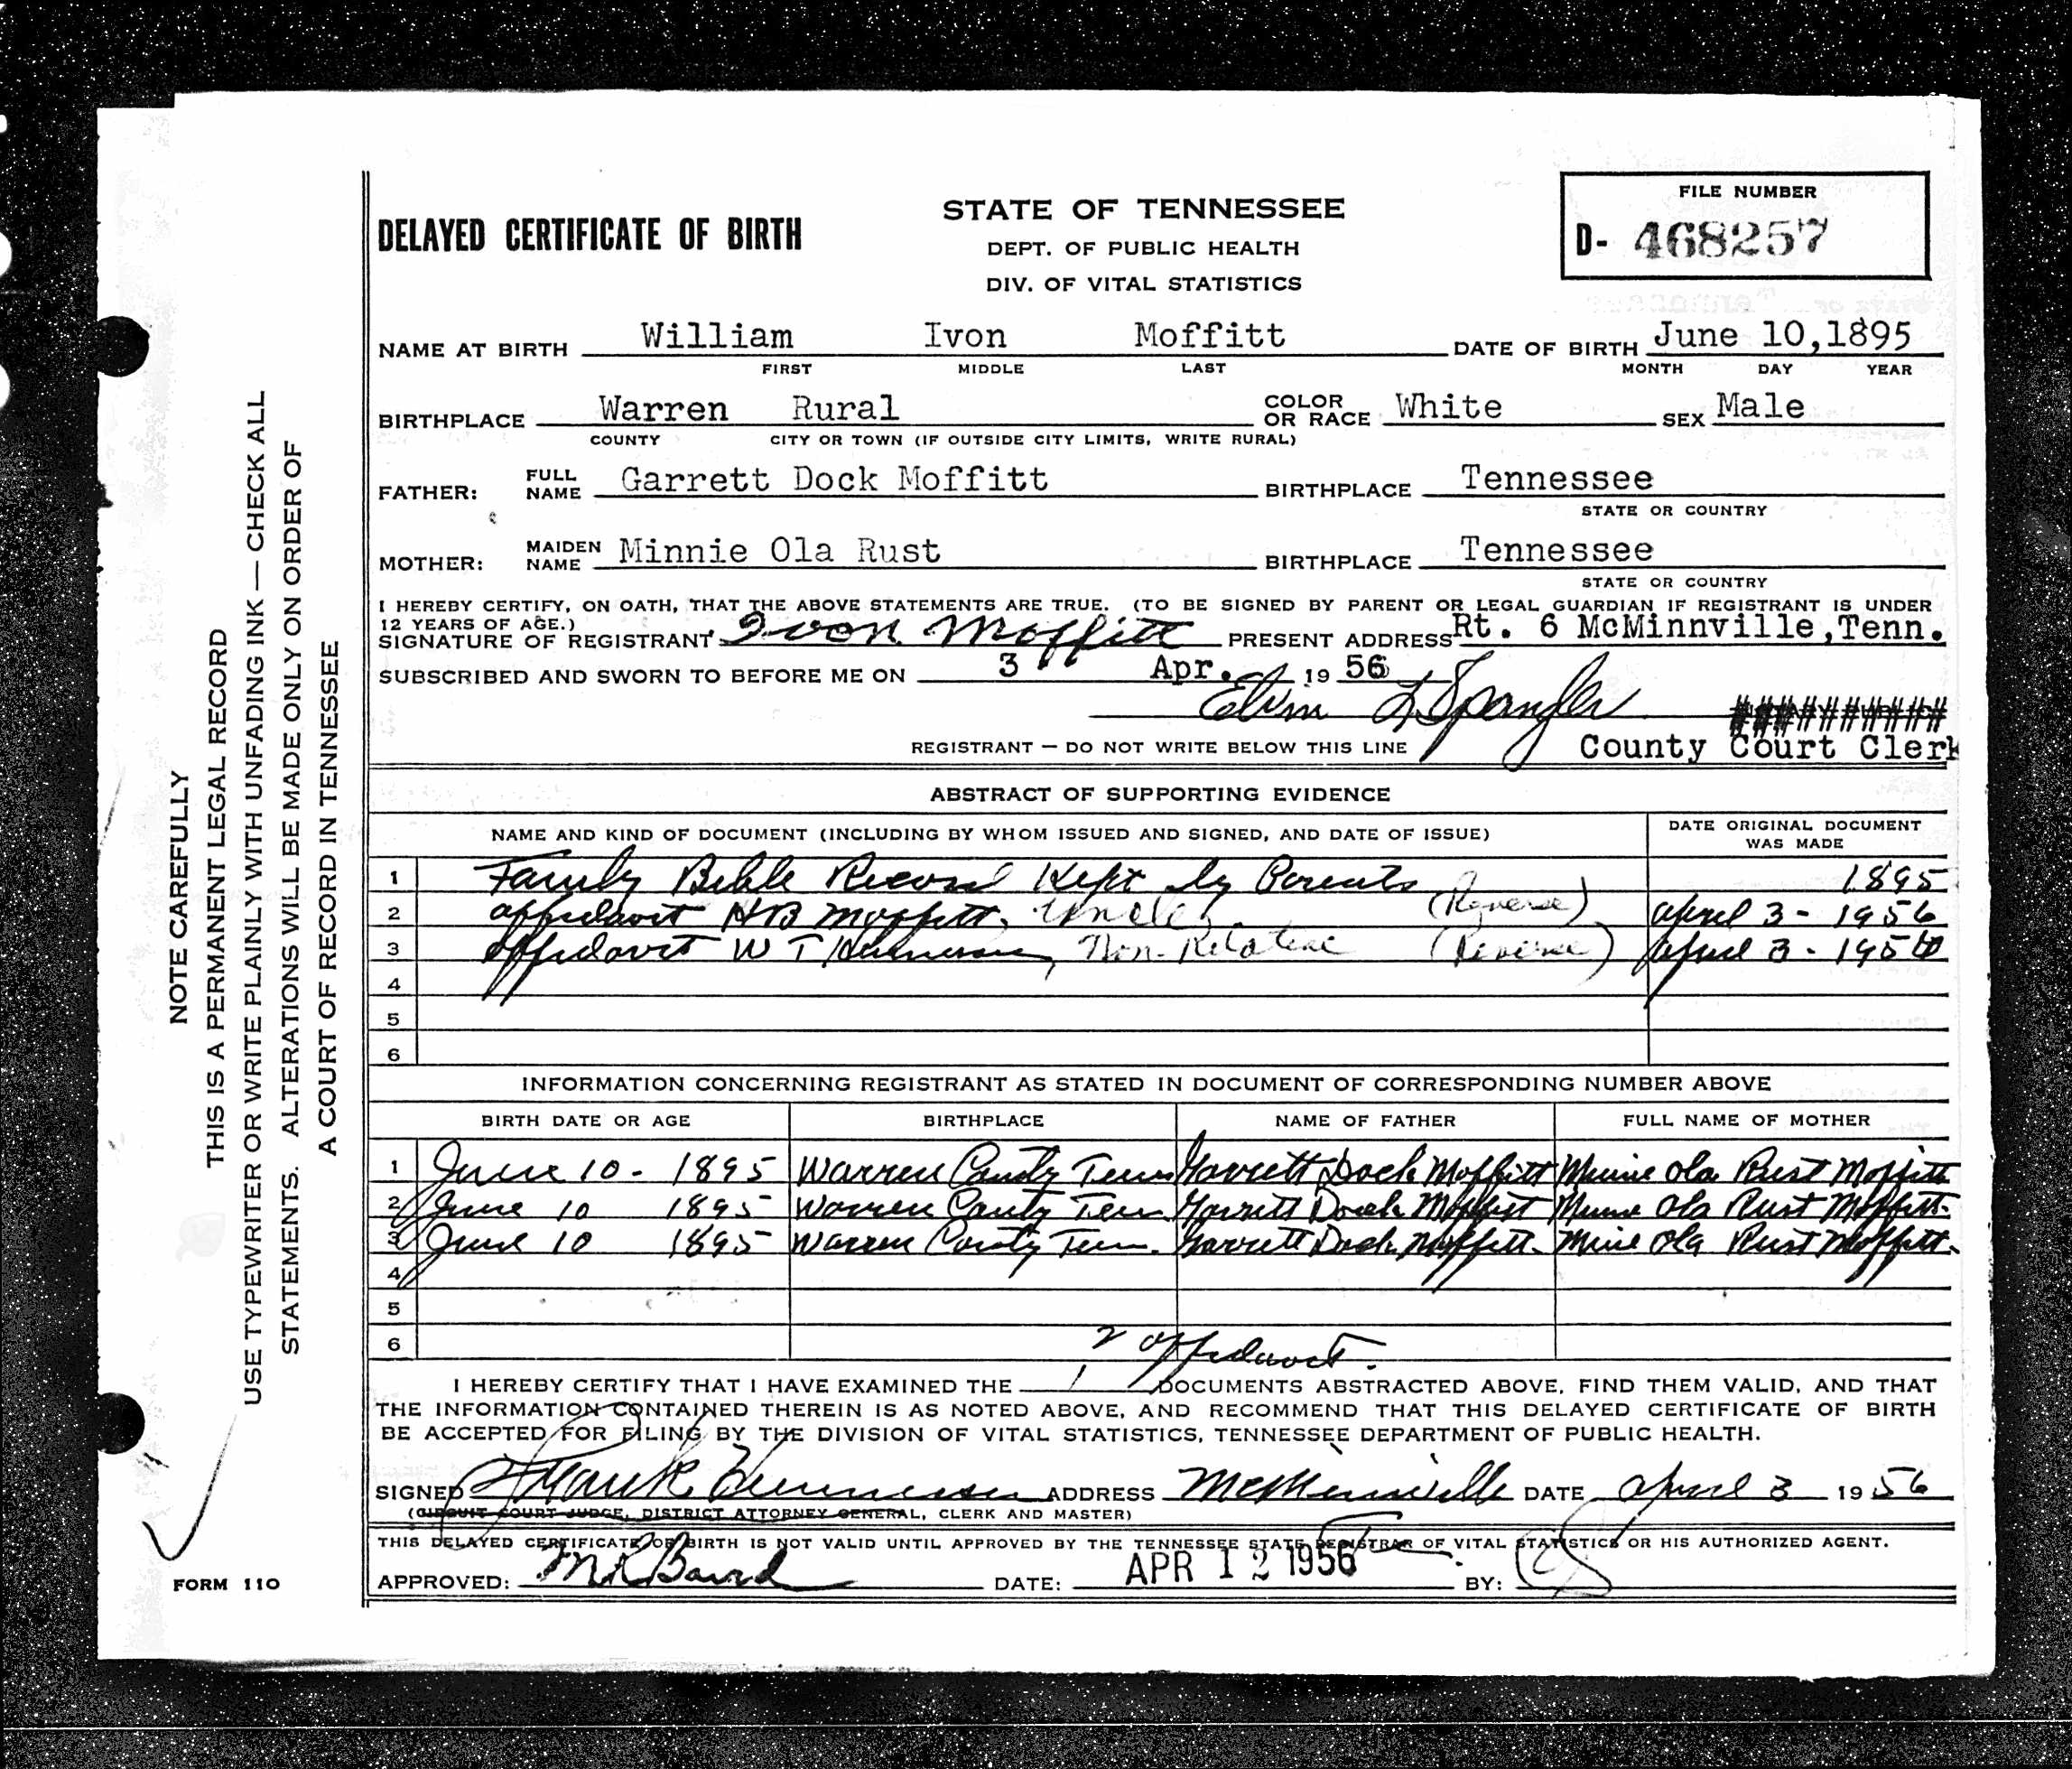 DELAYED CERTIFICATE OF BIRTH
STATE OF TENNESSEE
DEPT. OF PUBLIC HEALTH
DIV. OF VITAL STATISTICS
FILE NUMBER
D- 468257
NAME AT BIRTH William Ivon Moffitt DATE OF BIRTH June 10,1895
FIRST MIDDLE LAST MONTH DAY YEAR
BIRTHPLACE Warren Rural COLOR OR RACE White SEX Male
COUNTY CITY OR TOWN (IF OUTSIDE CITY LIMITS, WRITE RURAL)
FATHER: FULL NAME Garrett Dock Moffitt BIRTHPLACE Tennessee
STATE OR COUNTRY
MOTHER: MAIDEN NAME Minnie Ola Rust BIRTHPLACE Tennessee
STATE OR COUNTRY
I HEREBY CERTIFY, ON OATH, THAT THE ABOVE STATEMENTS ARE TRUE. (TO BE SIGNED BY PARENT OR LEGAL GUARDIAN IF REGISTRANT IS UNDER
12 YEARS OF AGE.)
SIGNATURE OF REGISTRANT Ivon Moffitt PRESENT ADDRESS Rt. 6 McMinnville,Tenn.
SUBSCRIBED AND SWORN TO BEFORE ME ON 3 Apr. 19 56
Elvin L Spangler ##########
REGISTRANT — DO NOT WRITE BELOW THIS LINE County Court Clerk
ABSTRACT OF SUPPORTING EVIDENCE
NAME AND KIND OF DOCUMENT (INCLUDING BY WHOM ISSUED AND SIGNED, AND DATE OF ISSUE) DATE ORIGINAL DOCUMENT WAS MADE
1 Family Bible Record Kept by Parents 1895
2 affidavit HB Moffitt, Uncle, (Reverse) april 3 - 1956
3 affidavit W T Hennessee, Non-Relative (Reverse) april 3 - 1956
4
5
6
INFORMATION CONCERNING REGISTRANT AS STATED IN DOCUMENT OF CORRESPONDING NUMBER ABOVE
BIRTH DATE OR AGE BIRTHPLACE NAME OF FATHER FULL NAME OF MOTHER
1 June 10 - 1895 Warren County Tenn Garrett Dock Moffitt Minnie Ola Rust Moffitt
2 June 10 1895 Warren County Tenn. Garrett Dock Moffitt Minnie Ola Rust Moffitt.
3 June 10 1895 Warren County Tenn. Garrett Dock Moffitt. Minie Ola Rust Moffitt.
4
5
6
2 affidavit.
I HEREBY CERTIFY THAT I HAVE EXAMINED THE 1 DOCUMENTS ABSTRACTED ABOVE, FIND THEM VALID, AND THAT
THE INFORMATION CONTAINED THEREIN IS AS NOTED ABOVE, AND RECOMMEND THAT THIS DELAYED CERTIFICATE OF BIRTH
BE ACCEPTED FOR FILING BY THE DIVISION OF VITAL STATISTICS, TENNESSEE DEPARTMENT OF PUBLIC HEALTH.
SIGNED Frank Hennessee ADDRESS McMinnville DATE april 3 19 56
(CIRCUIT COURT JUDGE, DISTRICT ATTORNEY GENERAL, CLERK AND MASTER)
THIS DELAYED CERTIFICATE OF BIRTH IS NOT VALID UNTIL APPROVED BY THE TENNESSEE STATE REGISTRAR OF VITAL STATISTICS OR HIS AUTHORIZED AGENT.
APPROVED: DATE: APR 12 1956 BY:
FORM 110
NOTE CAREFULLY
THIS IS A PERMANENT LEGAL RECORD
USE TYPEWRITER OR WRITE PLAINLY WITH UNFADING INK — CHECK ALL
STATEMENTS. ALTERATIONS WILL BE MADE ONLY ON ORDER OF
A COURT OF RECORD IN TENNESSEE